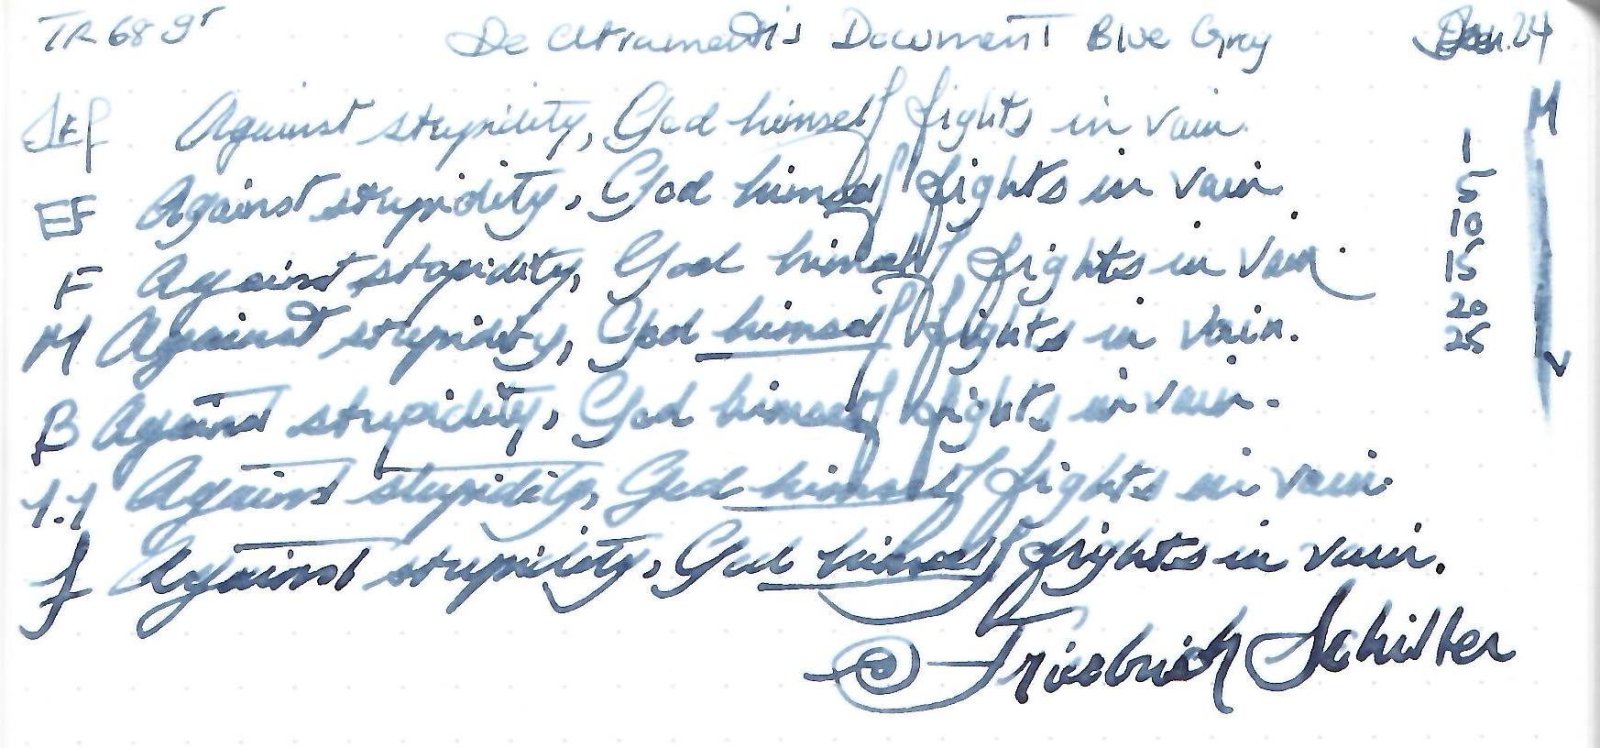 TR 68 gr De Atramentis Document Blue Grey Jan. 24
JEF Against stupidity, God himself fights in vain.
EF Against stupidity, God himself fights in vain.
F Against stupidity, God himself fights in vain.
M Against stupidity, God himself fights in vain.
B Against stupidity, God himself fights in vain.
1.1 Against stupidity, God himself fights in vain.
J Against stupidity, God himself fights in vain.
Friedrich Schiller
M
1
5
10
15
20
25